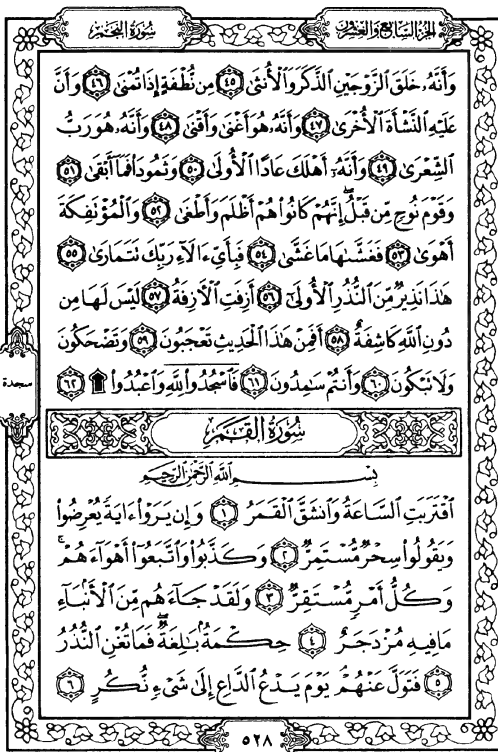 الجزء السابع والعشرون
سورة النجم
وَأَنَّهُۥ خَلَقَ ٱلزَّوْجَيْنِ ٱلذَّكَرَ وَٱلْأُنثَىٰ ٤٥ مِن نُّطْفَةٍ إِذَا تُمْنَىٰ ٤٦ وَأَنَّ
عَلَيْهِ ٱلنَّشْأَةَ ٱلْأُخْرَىٰ ٤٧ وَأَنَّهُۥ هُوَ أَغْنَىٰ وَأَقْنَىٰ ٤٨ وَأَنَّهُۥ هُوَ رَبُّ
ٱلشِّعْرَىٰ ٤٩ وَأَنَّهُۥٓ أَهْلَكَ عَادًا ٱلْأُولَىٰ ٥٠ وَثَمُودَا۟ فَمَآ أَبْقَىٰ ٥١
وَقَوْمَ نُوحٍ مِّن قَبْلُ ۖ إِنَّهُمْ كَانُوا۟ هُمْ أَظْلَمَ وَأَطْغَىٰ ٥٢ وَٱلْمُؤْتَفِكَةَ
أَهْوَىٰ ٥٣ فَغَشَّىٰهَا مَا غَشَّىٰ ٥٤ فَبِأَىِّ ءَالَآءِ رَبِّكَ تَتَمَارَىٰ ٥٥
هَٰذَا نَذِيرٌ مِّنَ ٱلنُّذُرِ ٱلْأُولَىٰٓ ٥٦ أَزِفَتِ ٱلْءَازِفَةُ ٥٧ لَيْسَ لَهَا مِن
دُونِ ٱللَّهِ كَاشِفَةٌ ٥٨ أَفَمِنْ هَٰذَا ٱلْحَدِيثِ تَعْجَبُونَ ٥٩ وَتَضْحَكُونَ
وَلَا تَبْكُونَ ٦٠ وَأَنتُمْ سَٰمِدُونَ ٦١ فَٱسْجُدُوا۟ لِلَّهِ وَٱعْبُدُوا۟ ۩ ٦٢
سجدة
سورة القمر
بِسْمِ ٱللَّهِ ٱلرَّحْمَٰنِ ٱلرَّحِيمِ
ٱقْتَرَبَتِ ٱلسَّاعَةُ وَٱنشَقَّ ٱلْقَمَرُ ١ وَإِن يَرَوْا۟ ءَايَةً يُعْرِضُوا۟
وَيَقُولُوا۟ سِحْرٌ مُّسْتَمِرٌّ ٢ وَكَذَّبُوا۟ وَٱتَّبَعُوٓا۟ أَهْوَآءَهُمْ ۚ
وَكُلُّ أَمْرٍ مُّسْتَقِرٌّ ٣ وَلَقَدْ جَآءَهُم مِّنَ ٱلْأَنۢبَآءِ
مَا فِيهِ مُزْدَجَرٌ ٤ حِكْمَةٌۢ بَٰلِغَةٌ ۖ فَمَا تُغْنِ ٱلنُّذُرُ
٥ فَتَوَلَّ عَنْهُمْ ۘ يَوْمَ يَدْعُ ٱلدَّاعِ إِلَىٰ شَىْءٍ نُّكُرٍ ٦
٥٢٨